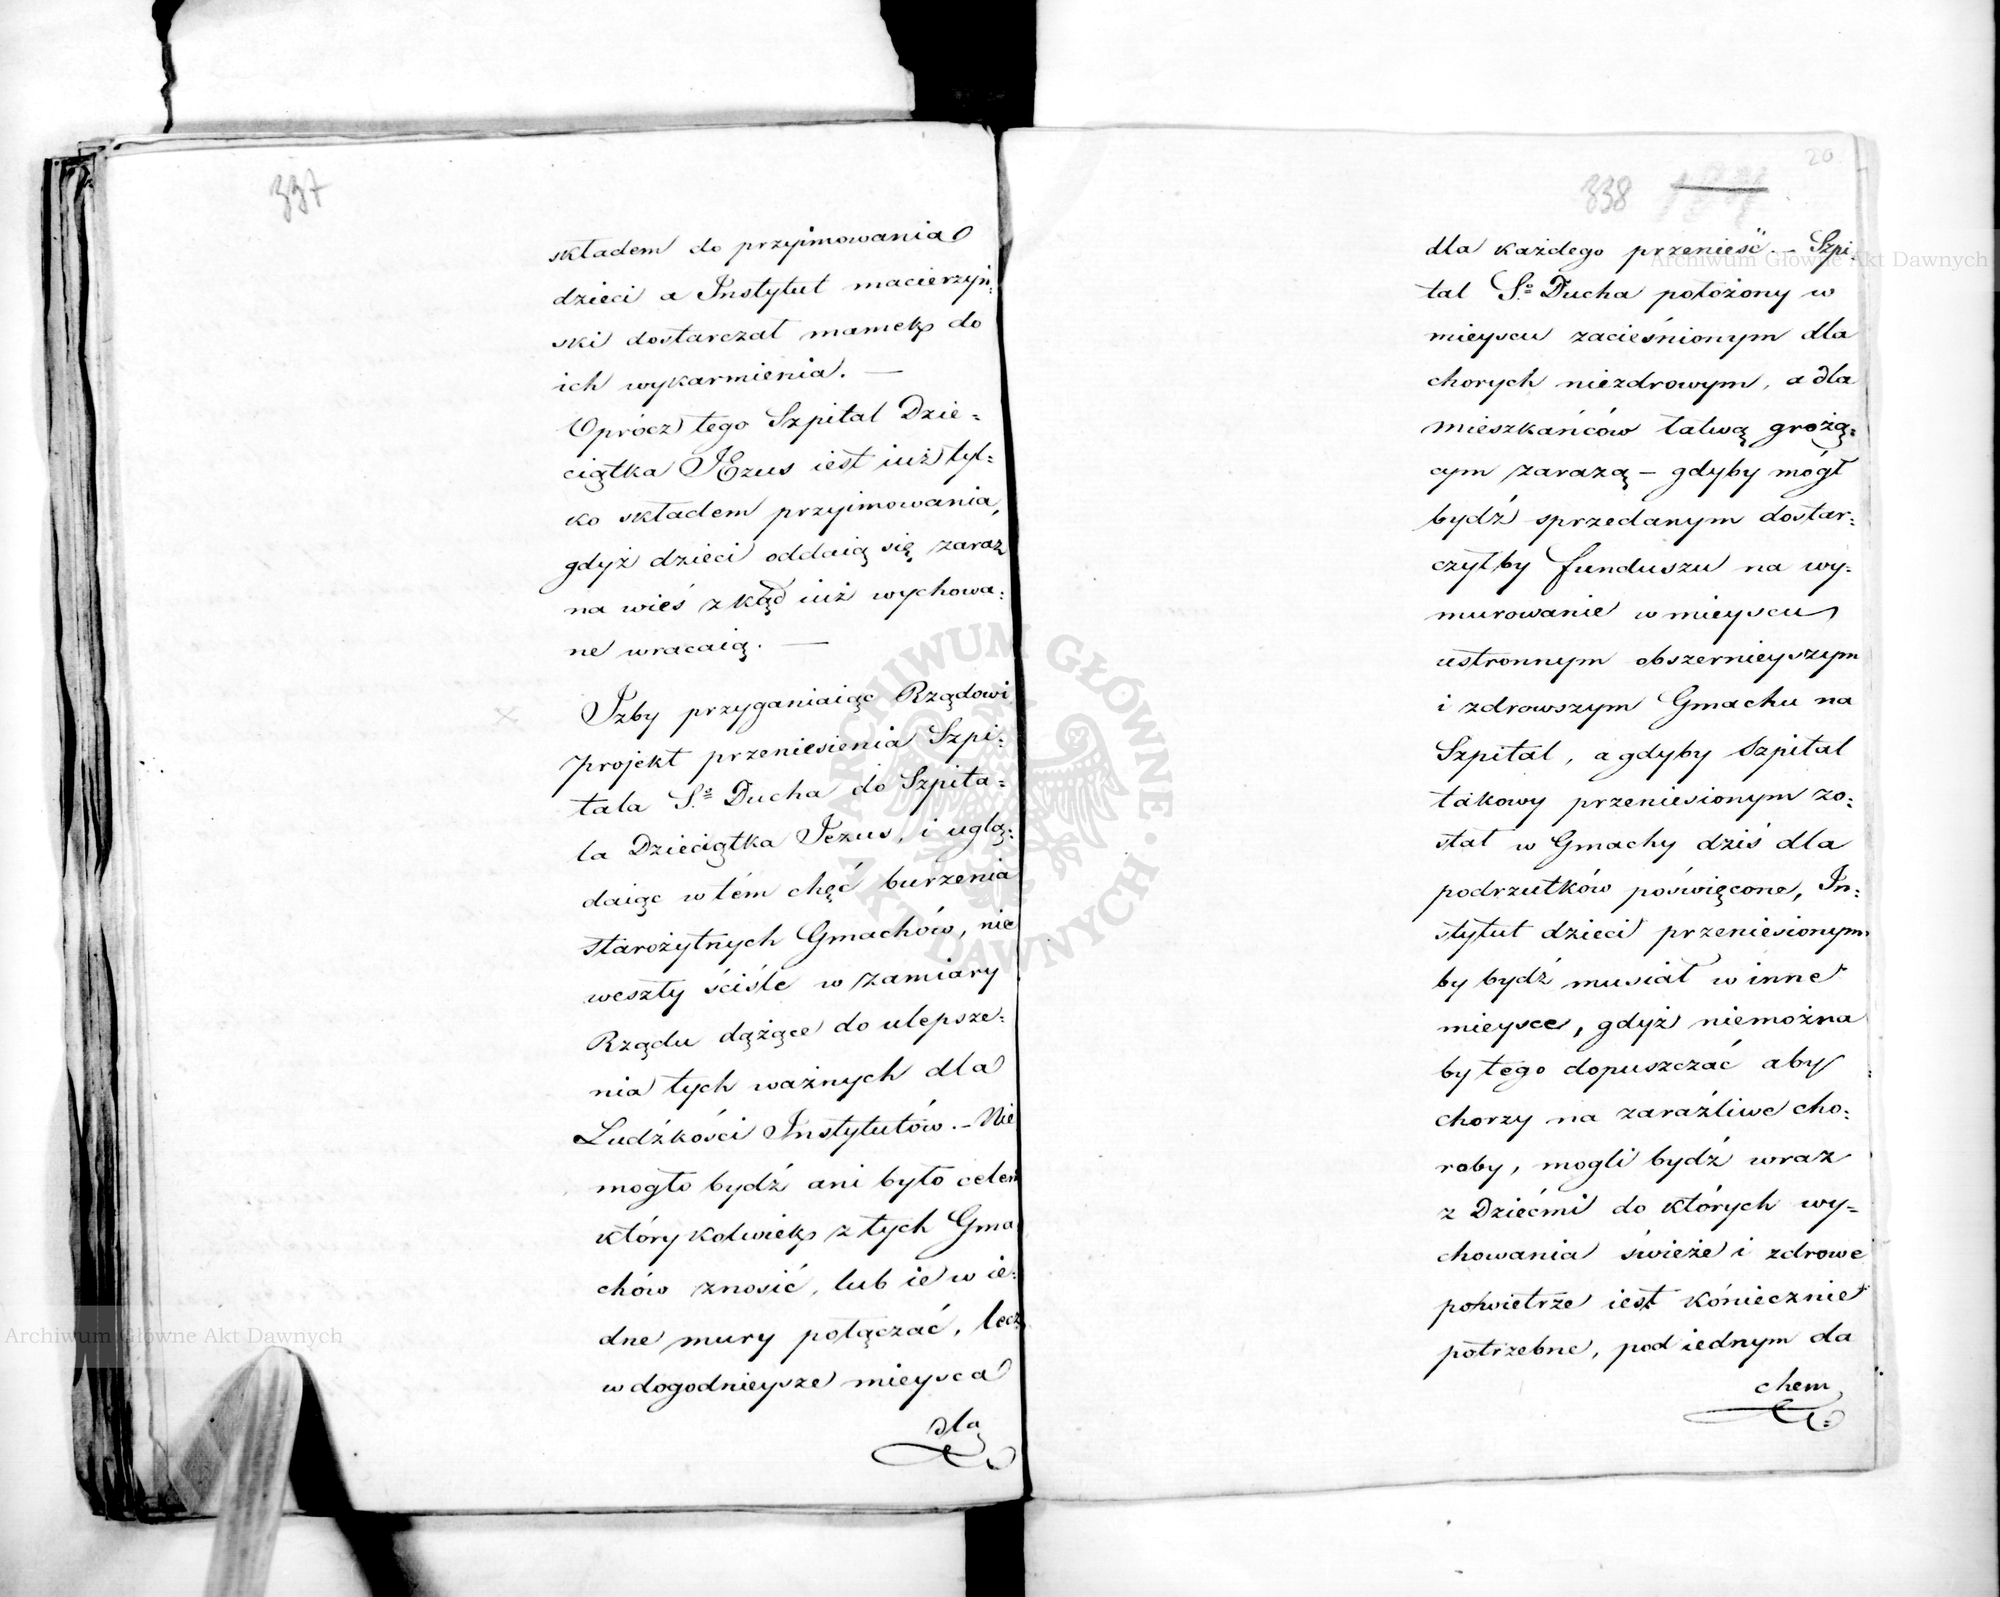 337
składem do przyimowania
dzieci a Instytut macierzyń:
ski dostarczał mamek do
ich wykarmienia. —
Oprócz tego Szpital Dzie=
ciątka JEzus iest iuż tyl=
ko składem przyimowania,
gdyż dzieci oddaią się zaraz
na wieś zkąd iuż wychowa:
ne wracaią. —
Izby przyganiaiąc Rządowi
projekt przeniesienia Szpi:
tala S.º Ducha do Szpita=
la Dzieciątka Jezus, i uglą:
daiąc w tém chęć burzenia
starożytnych Gmachów, nie
weszły ściśle w zamiary
Rządu dążące do ulepsze:
nia tych ważnych dla
Ludzkości Instytutów. – Nie
mogło bydź ani było celem
który kolwiek z tych Gma
chów znosić, lub ie w ie:
dne mury połączać, lecz
w dogodnieysze mieysca
dla
20
338
dla każdego przenieść. — Szpi
tal S.º Ducha położony w
mieyscu zacieśnionym dla
chorych niezdrowym, a dla
mieszkańców łatwą grożą:
cym zarazą – gdyby mógł
bydź sprzedanym dostar:
czyłby funduszu na wy:
murowanie w mieyscu
ustronnym obszernieyszym
i zdrowszym Gmachu na
Szpital, a gdyby Szpital
takowy przeniesionym zo:
stał w Gmachy dziś dla
podrzutków poświęcone, In:
stytut dzieci przeniesionym
by bydź musiał w inne
mieysce, gdyż niemożna
by tego dopuszczać aby
chorzy na zaraźliwe cho:
roby, mogli bydź wraz
z Dziećmi do których wy=
chowania świeże i zdrowe
powietrze iest koniecznie
potrzebne, pod iednym da
chem
Archiwum Główne Akt Dawnych
Archiwum Główne Akt Dawnych
ARCHIWUM GŁÓWNE · AKT DAWNYCH ·